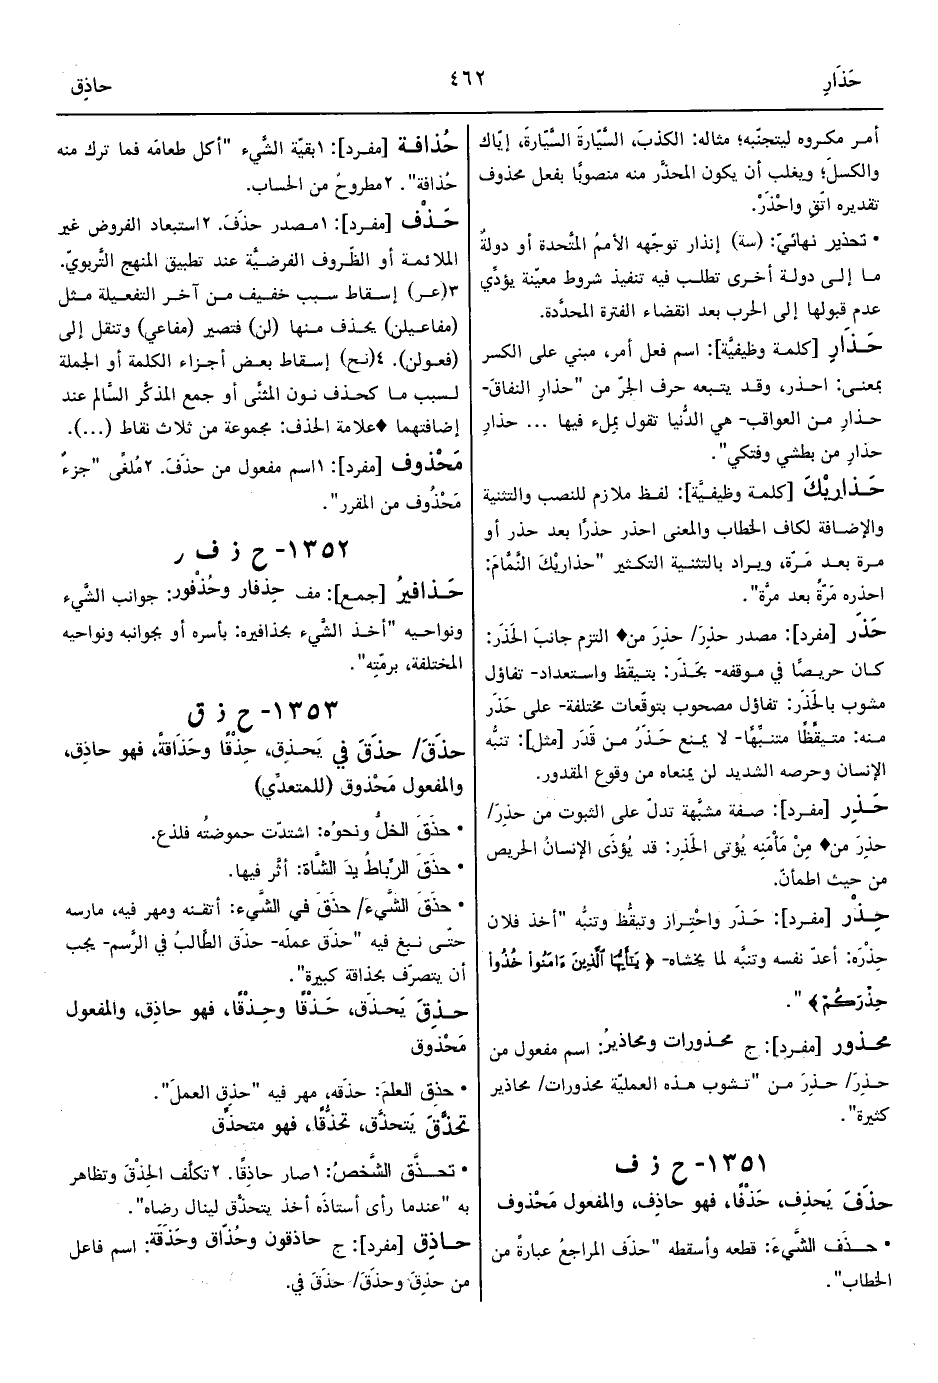 حَذَارِ
٤٦٢
حاذِق
أمر مكروه ليتجنّبه؛ مثاله: الكذبَ، السَّيّارةَ السَّيّارةَ، إيّاك
والكسلَ؛ ويغلب أن يكون المحذَّر منه منصوبًا بفعل محذوف
تقديره اتّقِ واحْذَرْ.
• تحذير نهائيّ: (سة) إنذار توجّهه الأممُ المتّحدة أو دولةٌ
ما إلى دولة أخرى تطلب فيه تنفيذ شروط معيّنة يؤدِّي
عدم قبولها إلى الحرب بعد انقضاء الفترة المحدَّدة.
حَذَارِ [كلمة وظيفيَّة]: اسم فعل أمر، مبني على الكسر
بمعنى: احذر، وقد يتبعه حرف الجرّ من "حذارِ النفاقَ-
حذارِ من العواقب- هي الدُّنيا تقول بملء فيها ... حذارِ
حذارِ من بطشي وفتكي".
حَذاريْكَ [كلمة وظيفيَّة]: لفظ ملازم للنصب والتثنية
والإضافة لكاف الخطاب والمعنى احذر حذرًا بعد حذر أو
مرة بعد مَرّة، ويراد بالتثنية التكثير "حذاريْكَ النَّمَّامَ:
احذره مَرّةً بعد مرَّة".
حَذَر [مفرد]: مصدر حذِرَ/ حذِرَ من♦ التزم جانبَ الحَذَر:
كان حريصًا في موقفه- بحَذَر: بتيقّظ واستعداد- تفاؤل
مشوب بالحَذَر: تفاؤل مصحوب بتوقّعات مختلفة- على حَذَر
منه: متيقِّظًا متنبِّهًا- لا يمنع حَذَرٌ من قَدَر [مثل]: تنبُّه
الإنسان وحرصه الشديد لن يمنعاه من وقوع المقدور.
حَذِر [مفرد]: صفة مشبَّهة تدلّ على الثبوت من حذِرَ/
حذِرَ من♦ مِنْ مَأْمَنِه يُؤتى الحَذِر: قد يُؤذَى الإنسانُ الحريص
من حيث اطمأنّ.
حِذْر [مفرد]: حَذَر واحْتِراز وتيقُّظ وتنبُّه "أخذ فلان
حِذْرَه: أعدّ نفسه وتنبَّه لما يخشاه- ﴿يَـٰٓأَيُّهَا ٱلَّذِينَ ءَامَنُوا۟ خُذُوا۟
حِذْرَكُمْ﴾".
محذور [مفرد]: ج محذورات ومحاذيرُ: اسم مفعول من
حذِرَ/ حذِرَ من "تشوب هذه العمليّة محذورات/ محاذير
كثيرة".
١٣٥١- ح ذ ف
حذَفَ يَحذِف، حَذْفًا، فهو حاذِف، والمفعول مَحْذوف
• حذَف الشَّيءَ: قطعه وأسقطه "حذَف المراجعُ عبارةً من
الخطاب".
حُذافة [مفرد]: ١بقيّة الشَّيء "أكل طعامَه فما ترك منه
حُذافة". ٢مطروحٌ من الحساب.
حَذْف [مفرد]: ١مصدر حذَفَ. ٢استبعاد الفروض غير
الملائمة أو الظّروف الفرضيَّة عند تطبيق المنهج التَّربويّ.
٣(عر) إسقاط سبب خفيف من آخر التفعيلة مثل
(مفاعيلن) يحذف منها (لن) فتصير (مفاعي) وتنقل إلى
(فعولن). ٤(نح) إسقاط بعض أجزاء الكلمة أو الجملة
لسبب ما كحذف نون المثنَّى أو جمع المذكَّر السَّالم عند
إضافتهما ♦علامة الحذف: مجموعة من ثلاث نقاط (...).
مَحْذوف [مفرد]: ١اسم مفعول من حذَفَ. ٢مُلغًى "جزءٌ
مَحْذُوف من المقرر".
١٣٥٢- ح ذ ف ر
حَذافيرُ [جمع]: مف حِذفار وحُذْفور: جوانب الشَّيء
ونواحيه "أخذ الشَّيء بحذافيره: بأسره أو بجوانبه ونواحيه
المختلفة، برمّته".
١٣٥٣- ح ذ ق
حذَقَ/ حذَقَ في يَحذِق، حِذْقًا وحَذَاقةً، فهو حاذِق،
والمفعول مَحْذوق (للمتعدِّي)
• حذَقَ الخلُّ ونحوُه: اشتدّت حموضتُه فلذع.
• حذَقَ الرِّباطُ يدَ الشَّاة: أثَّر فيها.
• حذَقَ الشَّيءَ/ حذَقَ في الشَّيء: أتقنه ومهر فيه، مارسه
حتّى نبغ فيه "حذَق عملَه- حذَق الطَّالبُ في الرَّسم- يجب
أن يتصرّف بحذاقة كبيرة".
حذِقَ يَحذَق، حَذْقًا وحِذْقًا، فهو حاذِق، والمفعول
مَحْذوق
• حذِق العلمَ: حذَقه، مهر فيه "حذِق العملَ".
تحذَّقَ يَتحذَّق، تحذُّقًا، فهو متحذِّق
• تحذَّق الشَّخصُ: ١صار حاذِقًا. ٢تكلَّف الحِذْقَ وتظاهر
به "عندما رأى أستاذَه أخذ يتحذَّق لينال رضاه".
حاذِق [مفرد]: ج حاذقون وحُذّاق وحَذَقَة: اسم فاعل
من حذِقَ وحذَقَ/ حذَقَ في.